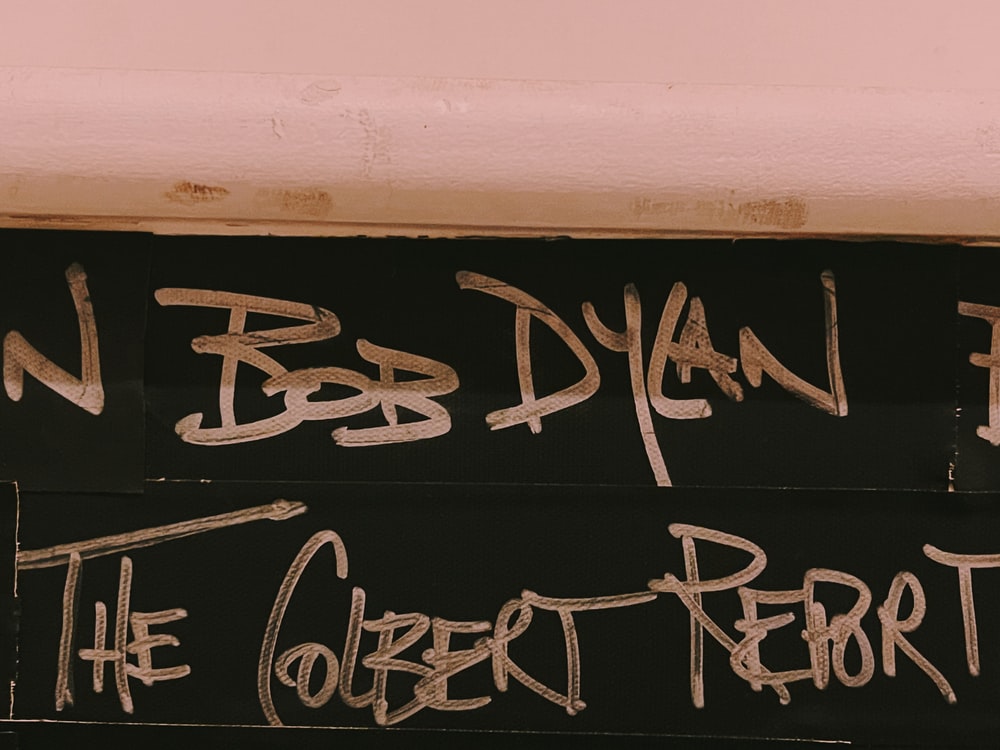 N BOB DYLAN
THE COLBERT REPORT